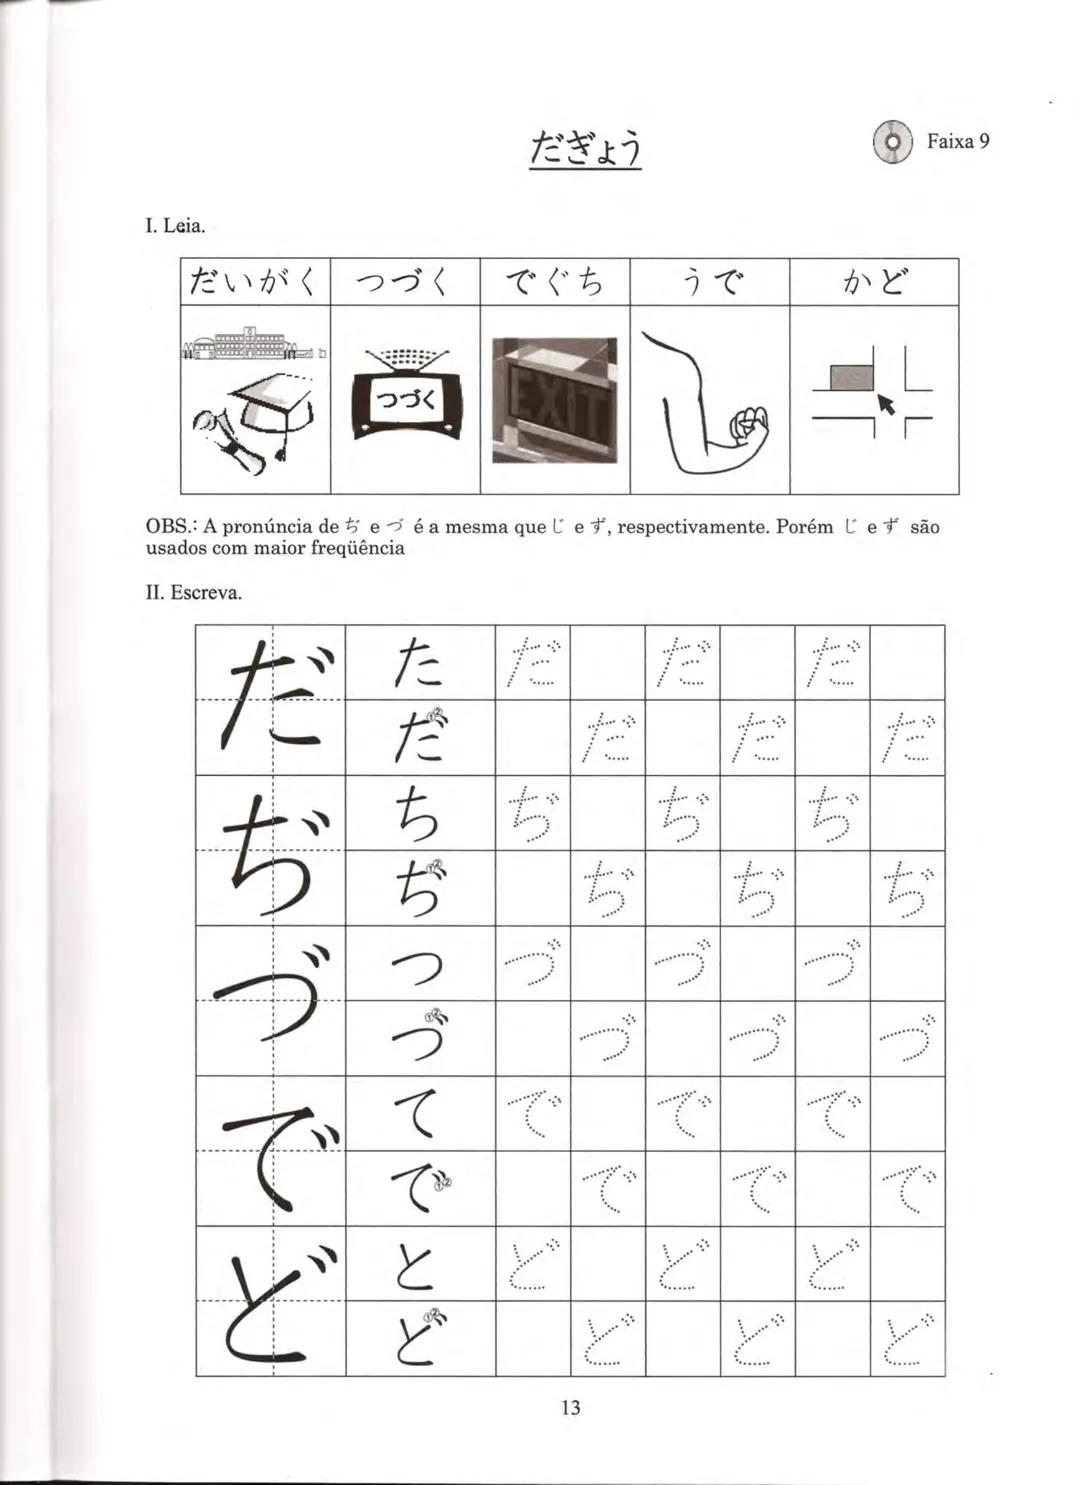 だぎょう
Faixa 9
I. Leia.
だいがく つづく でぐち うで かど
つづく
EXIT
OBS.: A pronúncia de ぢ e づ é a mesma que じ e ず, respectivamente. Porém じ e ず são
usados com maior freqüência
II. Escreva.
だ た だ だ だ
だ だ だ だ
ぢ ち ぢ ぢ ぢ
ぢ ぢ ぢ ぢ
づ つ づ づ づ
づ づ づ づ
で て で で で
で で で で
ど と ど ど ど
ど ど ど ど
13